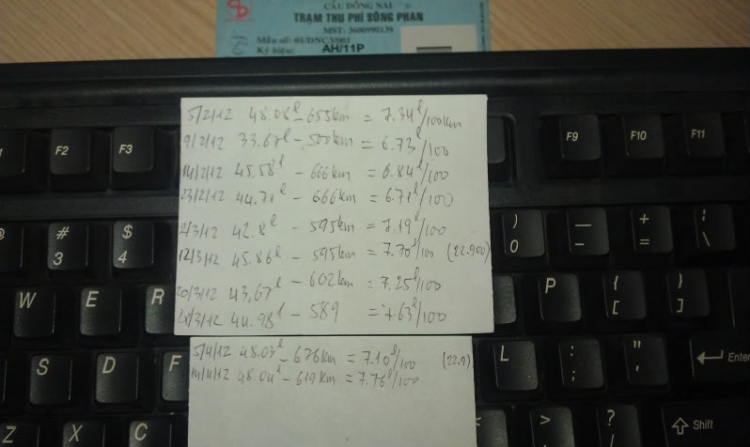 CẦU ĐỒNG NAI
TRẠM THU PHÍ SÔNG PHAN
MST: 3600990139
Mẫu số: 01/DNC3/001
Ký hiệu: AH/11P
5/2/12 48.08l - 655km = 7.34l/100km
9/2/12 33.67l - 500km = 6.73l/100
14/2/12 45.58l - 666km = 6.84l/100
23/2/12 44.71l - 666km = 6.71l/100
2/3/12 42.8l - 595km = 7.19l/100
12/3/12 45.86l - 595km = 7.70l/100 (22.900)
20/3/12 43,67l - 602km = 7.25l/100
/3/12 44.98l - 589 = 7.63l/100
5/4/12 48.03l - 676km = 7.10l/100 (22.9)
14/4/12 48.04l - 619km = 7.76l/100
F2 F3 F9 F10 F11
# $ ) — + ¦
3 4 0 - = \
W E R P { }
[ ]
S D F L : " Enter
; '
Z X C > ? Shift
. /